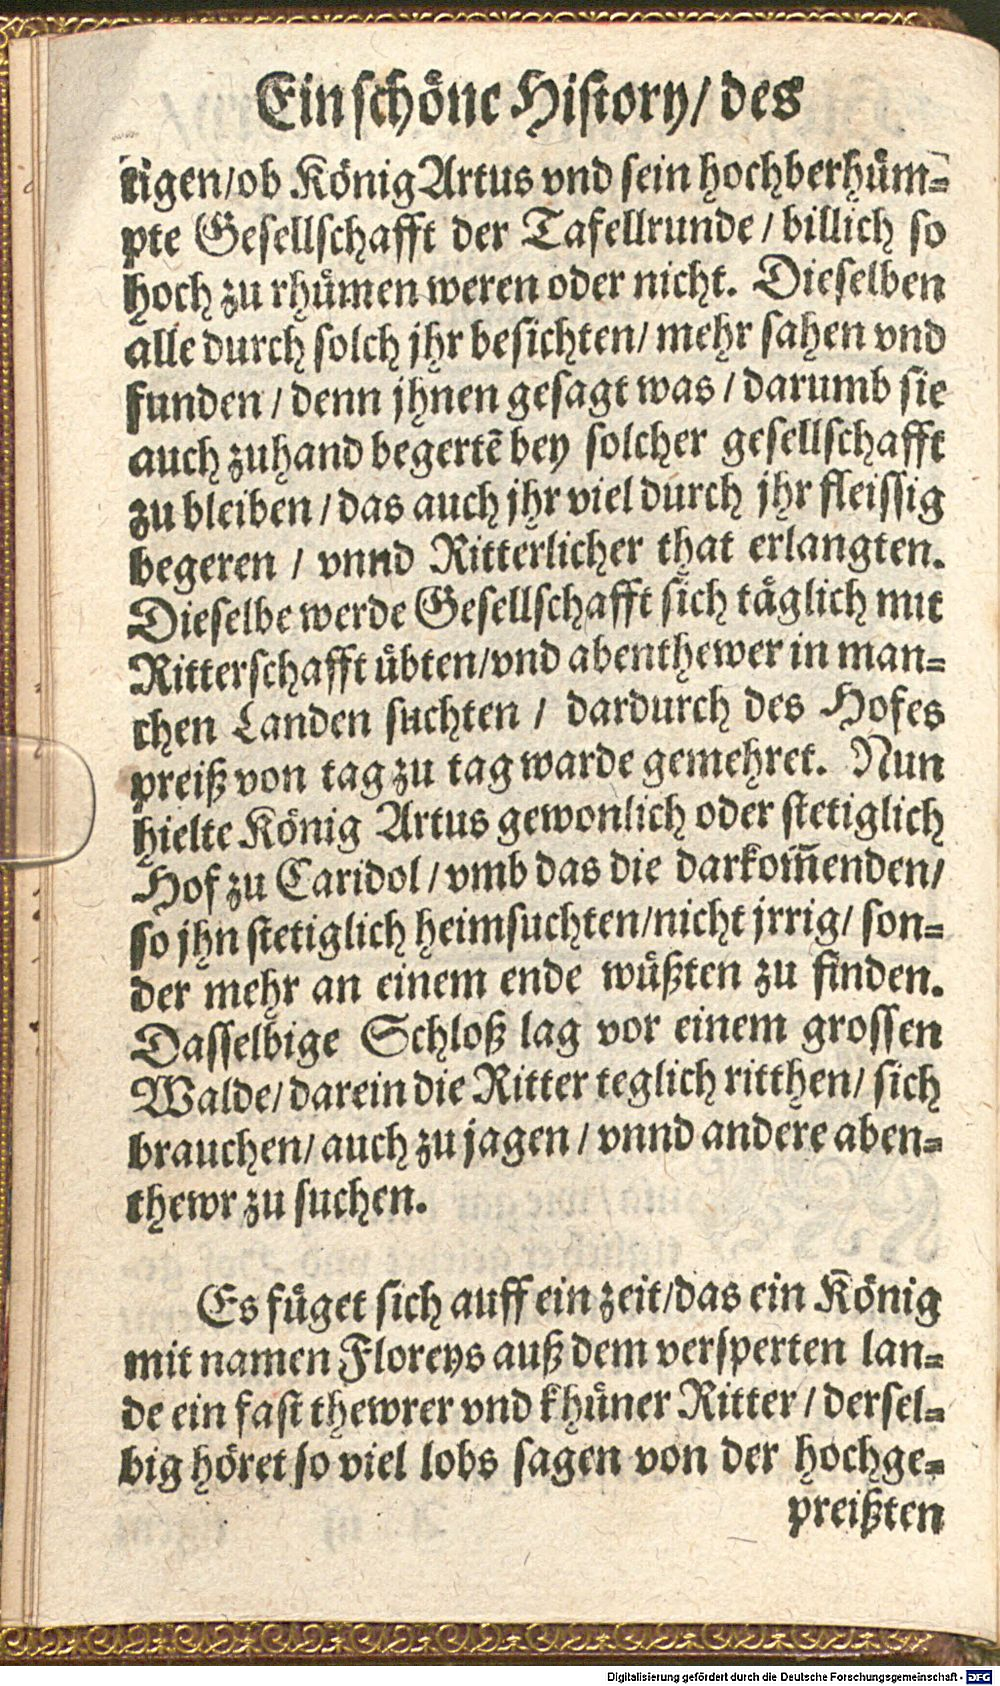 Ein schöne History/ des
tigen/ob König Artus vnd sein hochberhüm-
pte Gesellschafft der Tafellrunde / billich so
hoch zu rhümen weren oder nicht. Dieselben
alle durch solch jhr besichten/ mehr sahen vnd
funden / denn jhnen gesagt was / darumb sie
auch zuhand begertẽ bey solcher gesellschafft
zu bleiben / das auch jhr viel durch jhr fleissig
begeren / vnnd Ritterlicher that erlangten.
Dieselbe werde Gesellschafft sich täglich mit
Ritterschafft übten/vnd abenthewer in man-
chen Landen suchten / dardurch des Hofes
preiß von tag zu tag warde gemehret. Nun
hielte König Artus gewonlich oder stetiglich
Hof zu Caridol / vmb das die darkom̃enden/
so jhn stetiglich heimsuchten/nicht jrrig/ son-
der mehr an einem ende wüßten zu finden.
Dasselbige Schloß lag vor einem grossen
Walde/ darein die Ritter teglich ritthen/ sich
brauchen/ auch zu jagen / vnnd andere aben-
thewr zu suchen.
Es füget sich auff ein zeit/das ein König
mit namen Floreys auß dem versperten lan-
de ein fast thewrer vnd khüner Ritter / dersel-
big höret so viel lobs sagen von der hochge-
preißten
Digitalisierung gefördert durch die Deutsche Forschungsgemeinschaft - DFG